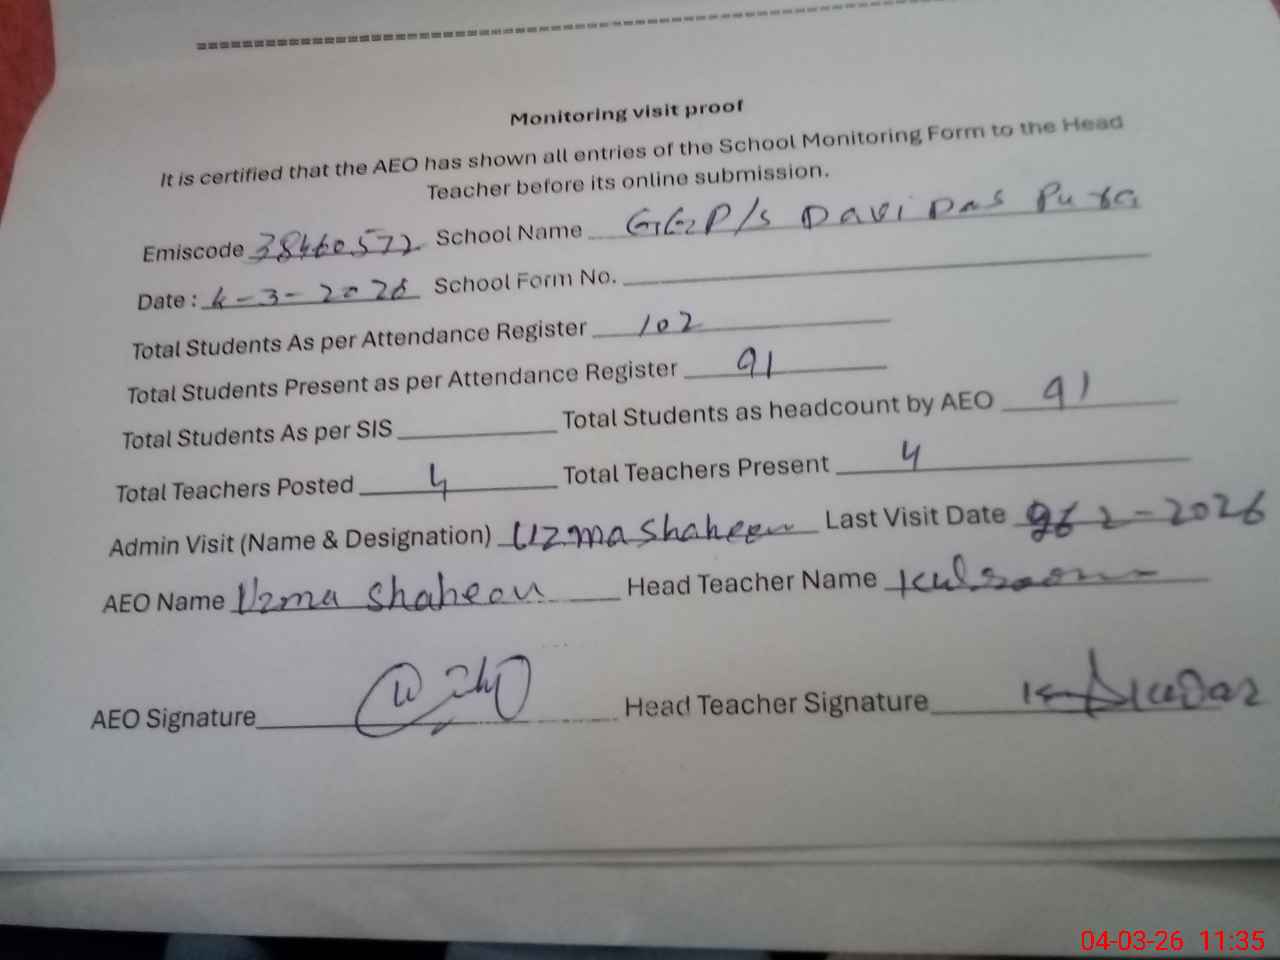 Monitoring visit proof
It is certified that the AEO has shown all entries of the School Monitoring Form to the Head
Teacher before its online submission.
Emiscode 38460572 School Name GGP/s Davi Das Pura
Date : 4-3-2026 School Form No.
Total Students As per Attendance Register 102
Total Students Present as per Attendance Register 91
Total Students As per SIS Total Students as headcount by AEO 91
Total Teachers Posted 4 Total Teachers Present 4
Admin Visit (Name & Designation) Uzma Shaheen Last Visit Date 2-2026
AEO Name Uzma Shaheen Head Teacher Name Kulsoom
AEO Signature Head Teacher Signature
04-03-26 11:35